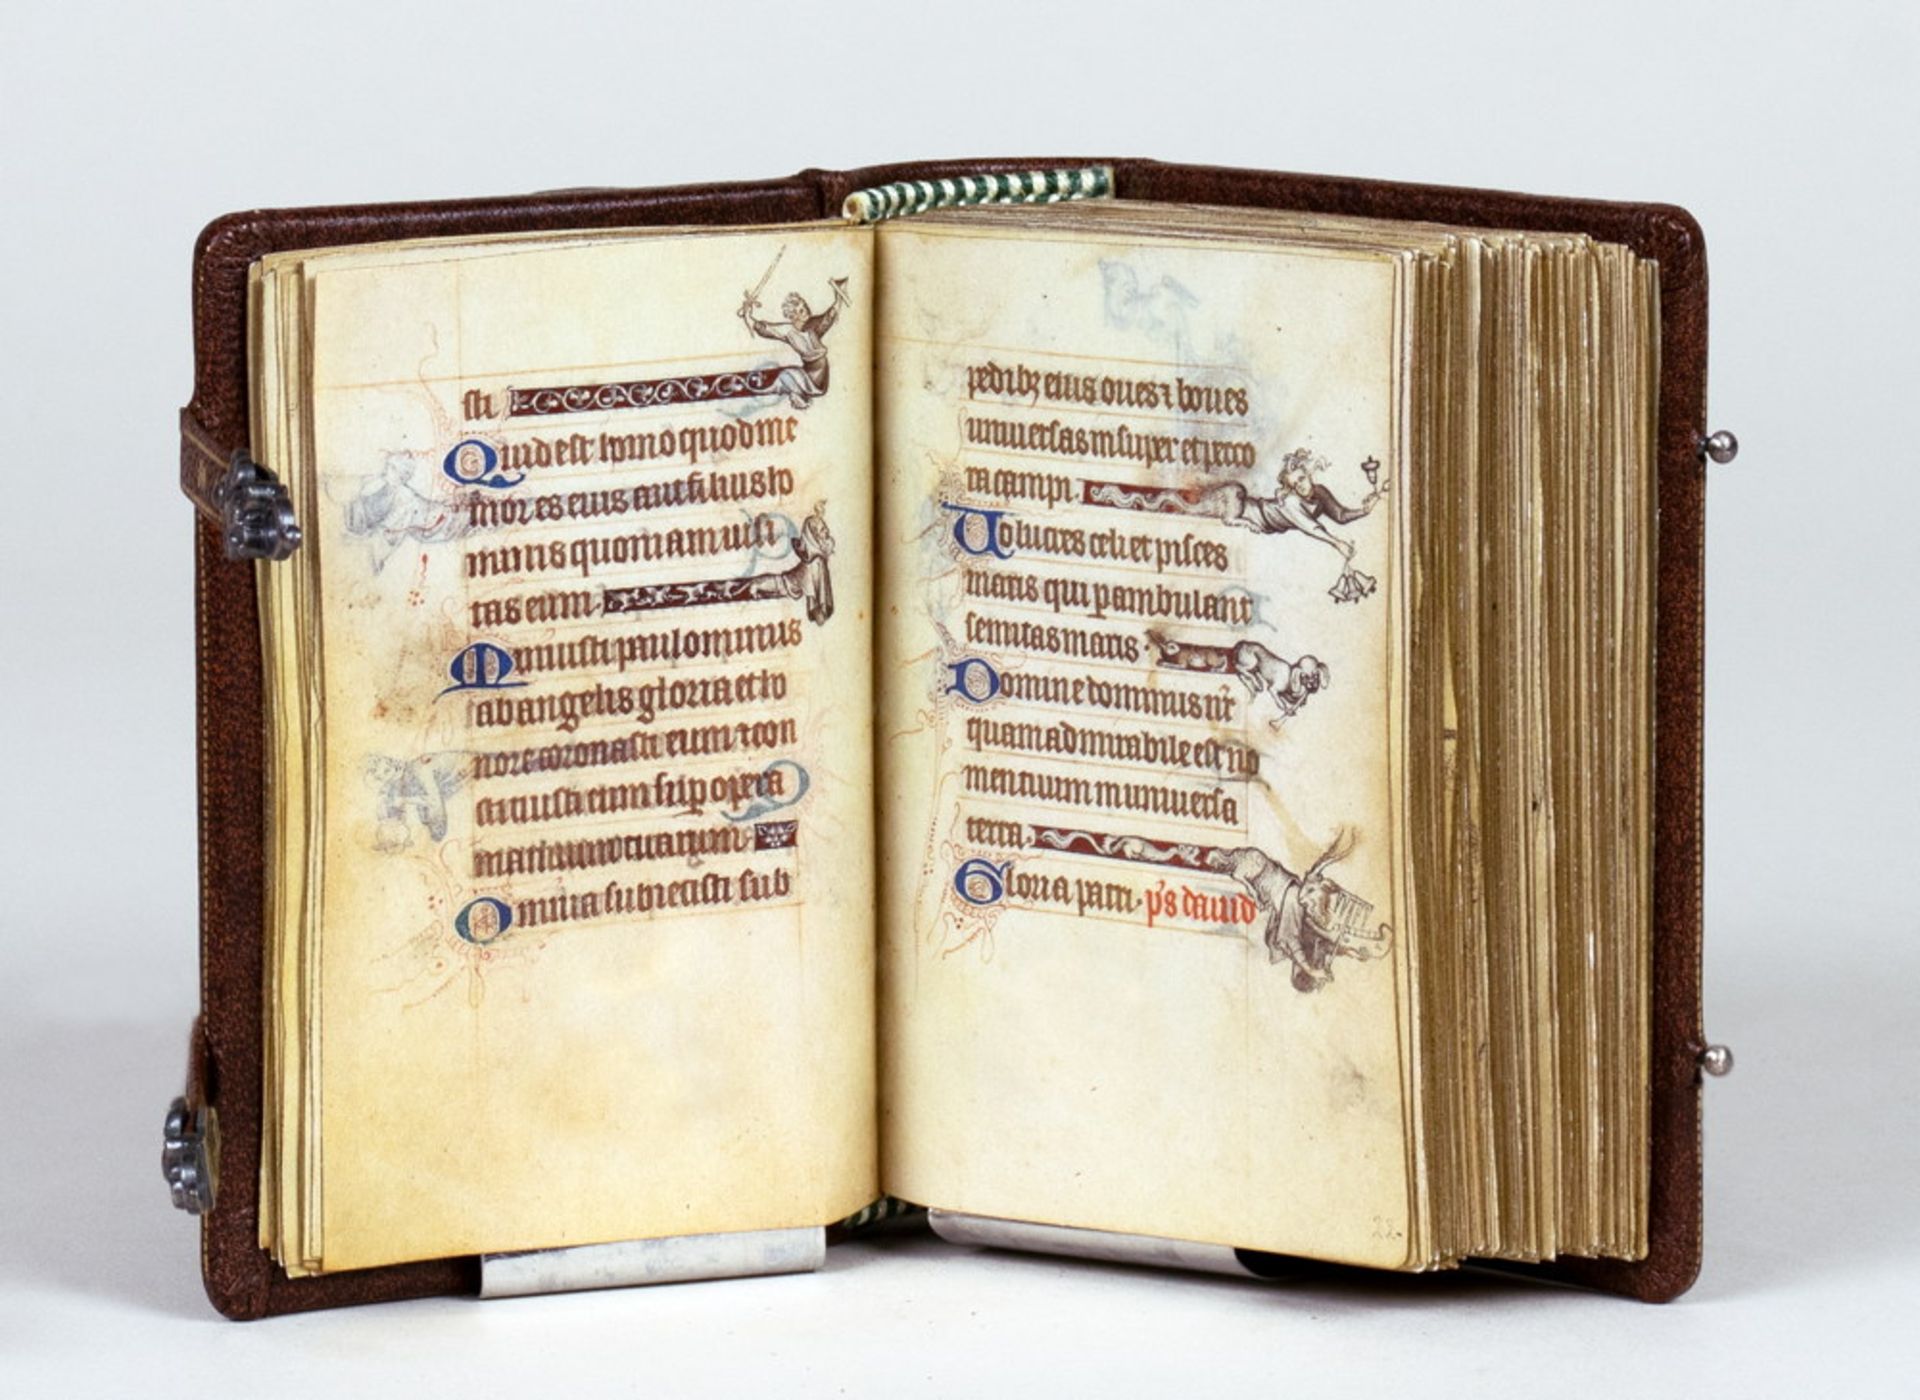 sti
Quid est homo quod me
mor es eius aut fili᷒ ho
minis quoniam uisi
tas eum.
Minuisti paulominus
ab angelis gloria et ho
nore coronasti eum ⁊ con
stituisti eum suꝑ opera
manuum tuarum.
Omnia subiecisti sub
pedibꝫ eius oues ⁊ boues
uniuersas insuper et peco
ra campi.
Uolucres celi et pisces
maris qui ꝑambulant
semitas maris.
Domine dominus nr̄
quam admirabile est no
men tuum in uniuersa
terra.
Gloria patri. p̄s dauid
22.